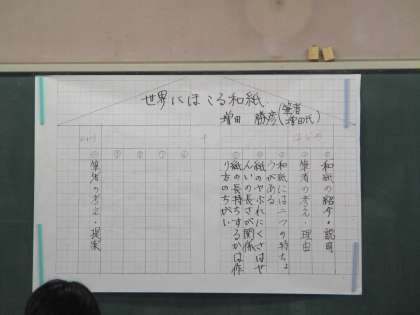 世界にほこる和紙
増田 勝彦(筆者 増田氏)
中
和紙の紹介・説明
筆者の考え・理由
和紙には二つの特ちょ
うがある
紙のやぶれにくさはせ
んいの長さが関係
紙の長持ちするかは作
り方のちがい
筆者の考え・提案